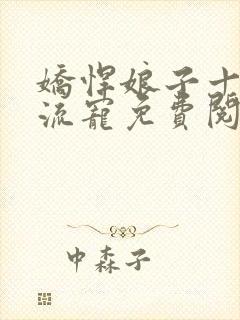 嬌悍娘子十
流寵免費閱
中森子